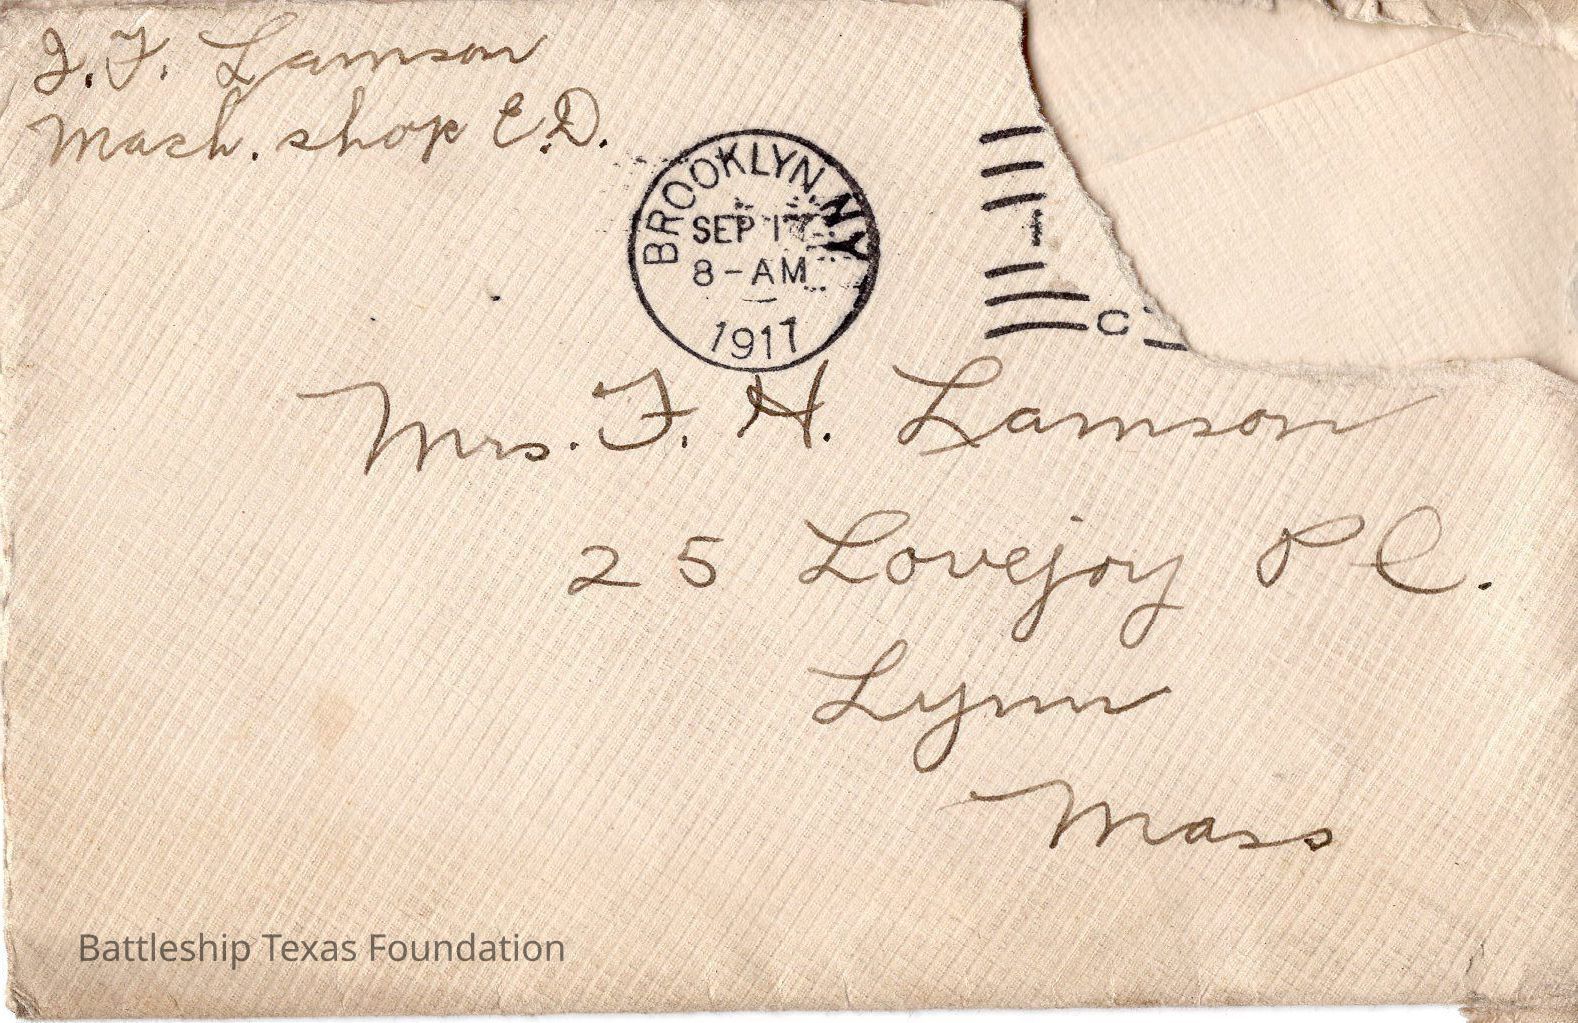 I. F. Lamson
Mach. shop E.D.
BROOKLYN, N.Y.
SEP 17
8-AM
1917
Mrs. F. H. Lamson
25 Lovejoy Pl.
Lynn
Mass
Battleship Texas Foundation